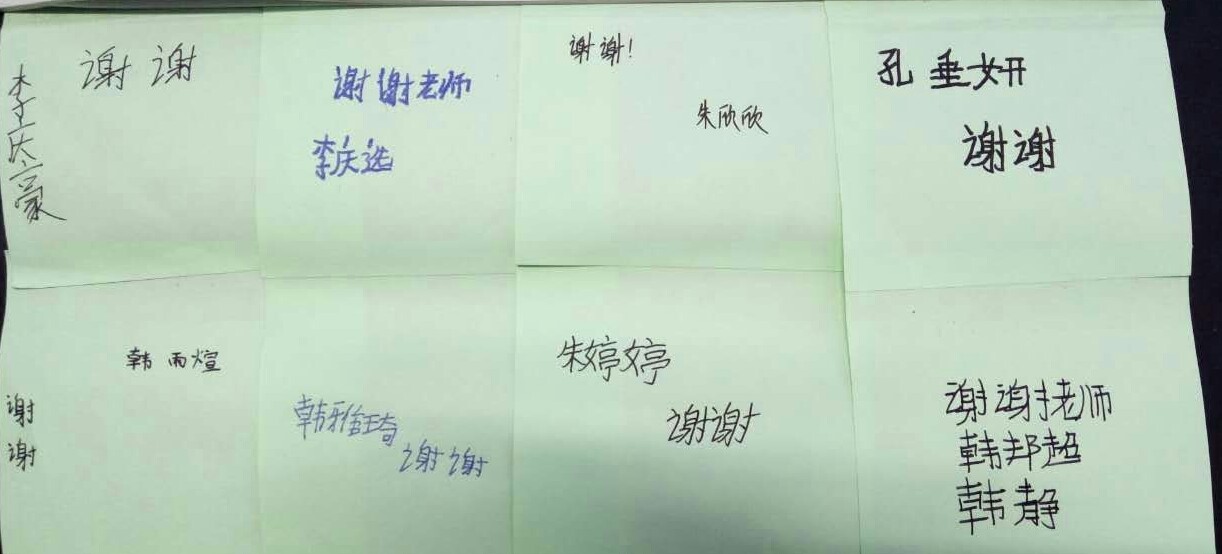 李庆豪
谢谢
谢谢老师
李庆选
谢谢!
朱欣欣
孔垂妍
谢谢
韩雨煊
谢
谢
韩雅琦
谢谢
朱婷婷
谢谢
谢谢老师
韩邦超
韩静